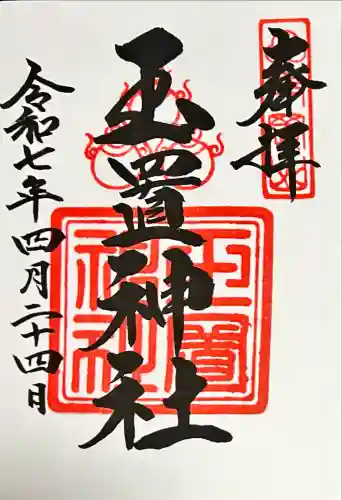 奉拝
玉置神社
令和七年四月二十四日
玉置
神社